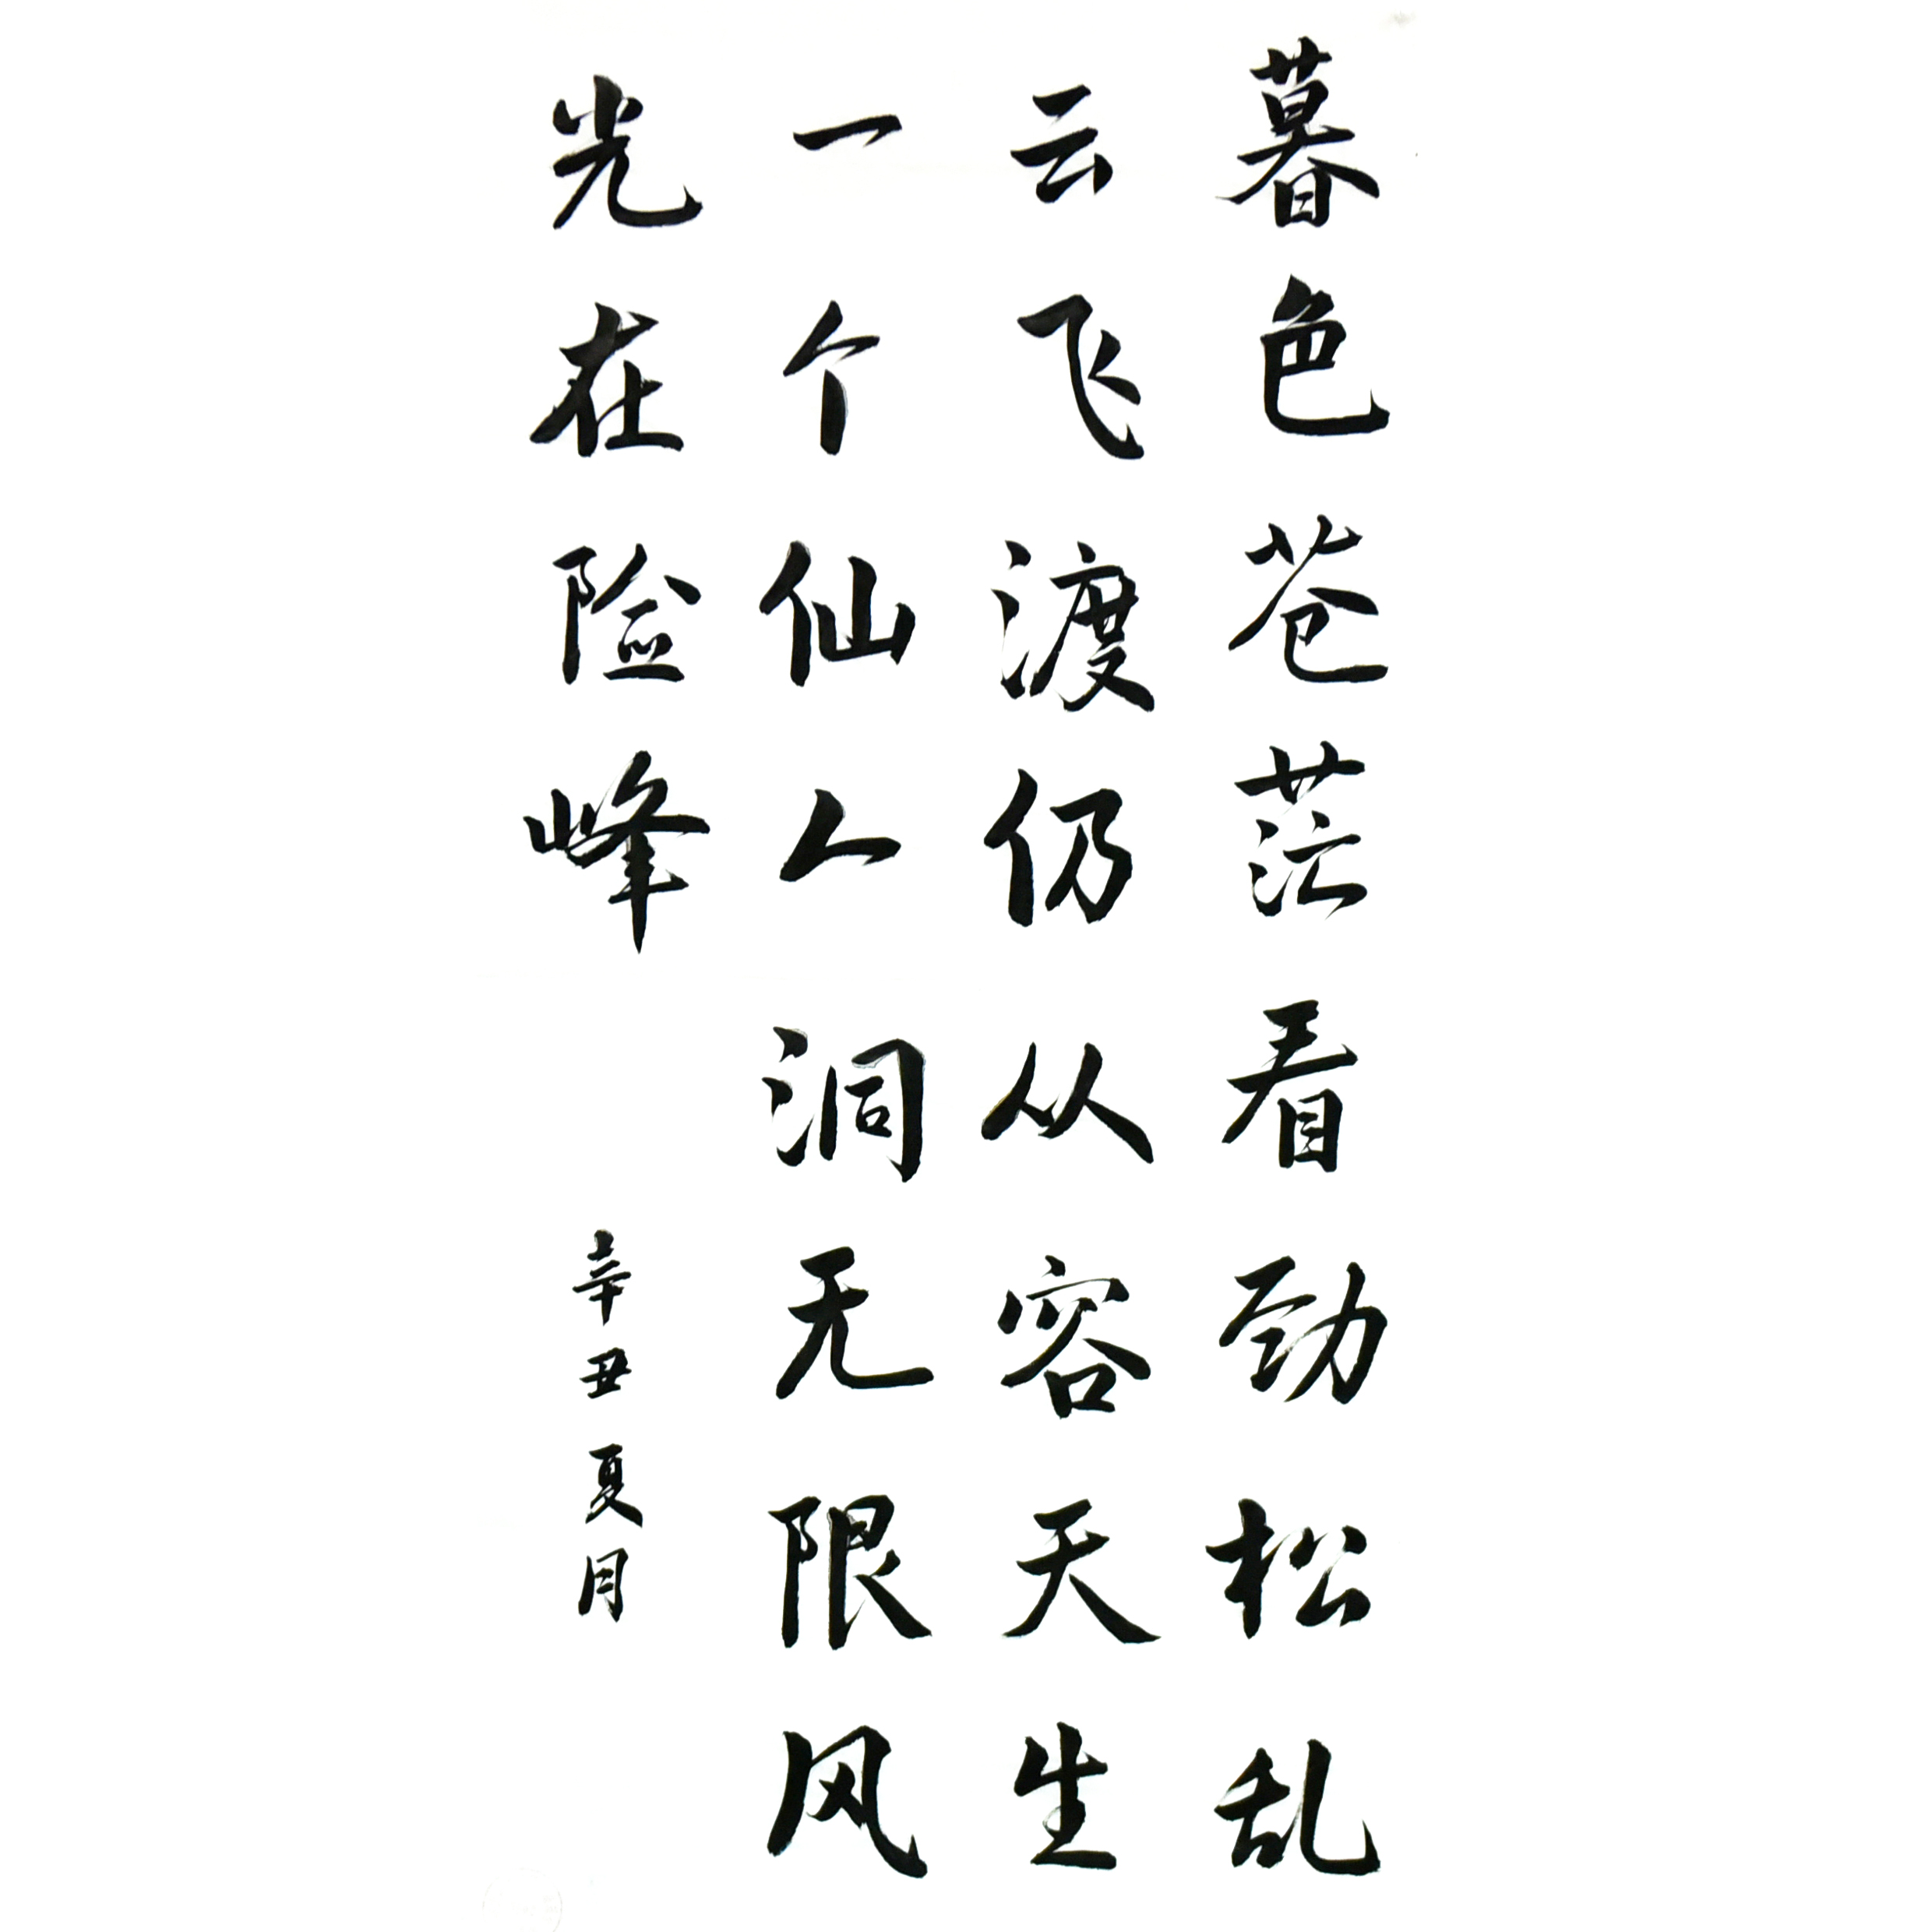 暮色苍茫看劲松乱
云飞渡仍从容天生
一个仙人洞无限风
光在险峰
辛丑夏月